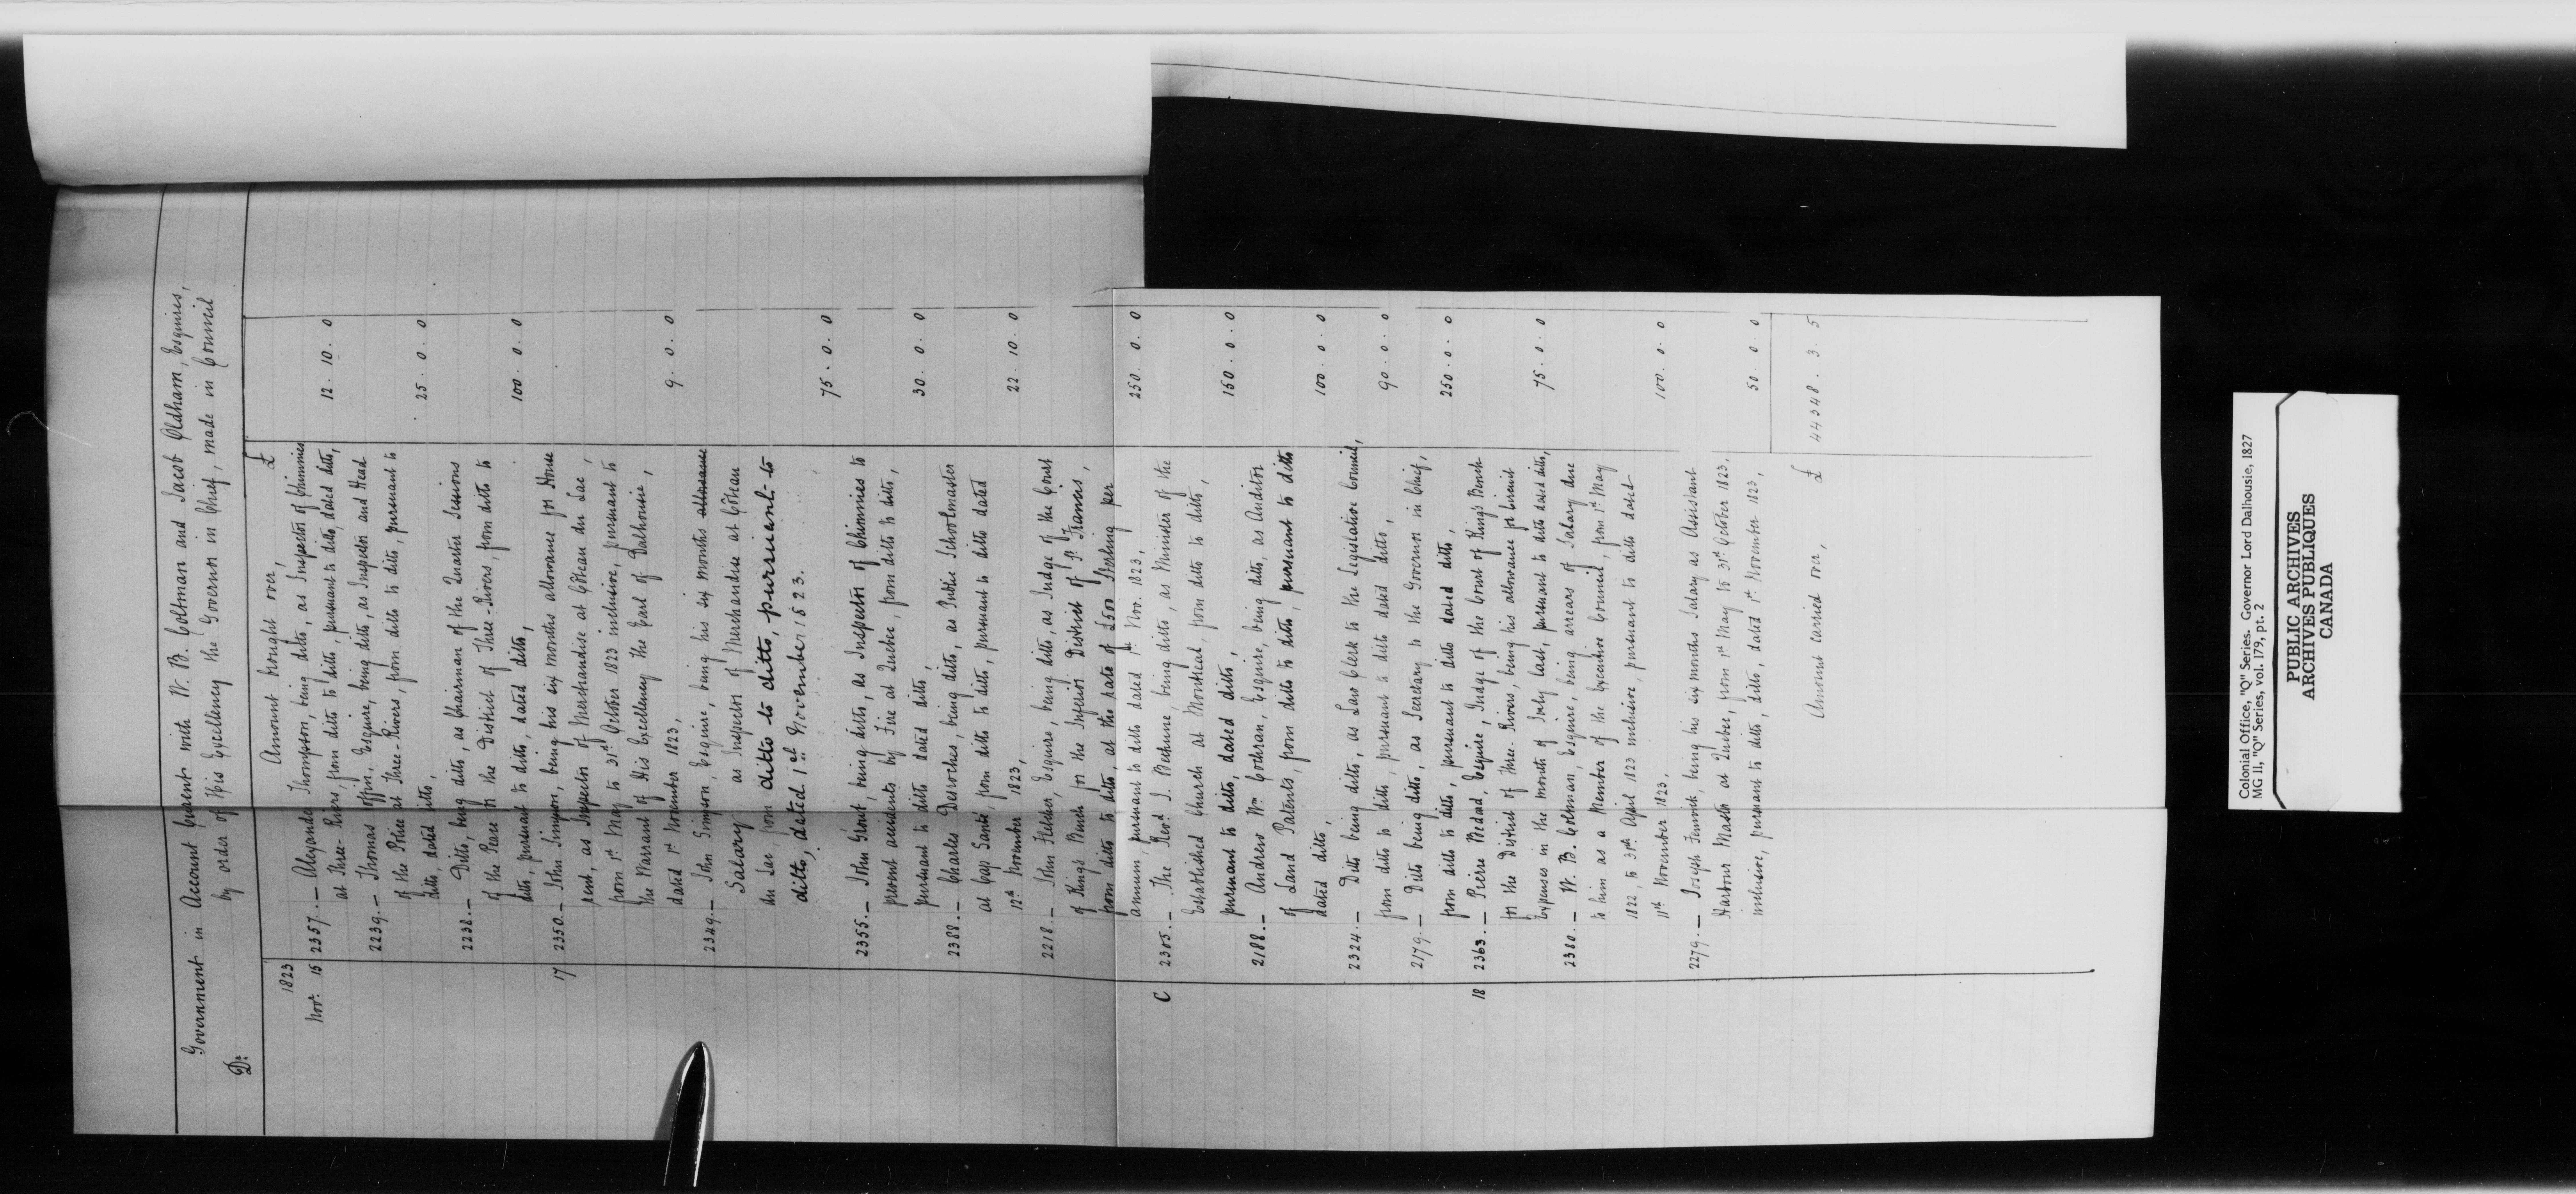 Government in Account Current with W. B. Coltman and Jacob Oldham, Esquires,
Dr. by order of His Excellency the Governor in Chief, made in Council
1823 Amount brought over, £
Nov. 15 2357. — Alexander Thompson, being ditto, as Inspector of Chimnies
at Three-Rivers, from ditto to ditto, pursuant to ditto, dated ditto, 12. 10. 0
2239. — Thomas Coffin, Esquire, being ditto, as Inspector and Head
of the Police at Three-Rivers, from ditto to ditto, pursuant to
ditto, dated ditto, 25. 0. 0
2238. — Ditto, being ditto, as Chairman of the Quarter Sessions
of the Peace in the District of Three-Rivers, from ditto to
ditto, pursuant to ditto, dated ditto, 100. 0. 0
17 2350. — John Simpson, being his six months allowance for House
rent, as Inspector of Merchandise at Côteau du Lac,
from 1st May to 31st October 1823 inclusive, pursuant to
the Warrant of His Excellency the Earl of Dalhousie,
dated 1st November 1823, 9. 0. 0
2349. — John Simpson, Esquire, being his six months allowance
Salary as Inspector of Merchandise at Côteau
du Lac, from ditto to ditto, pursuant to
ditto, dated 1st November 1823. 75. 0. 0
2355. — John Grant, being ditto, as Inspector of Chimnies to
prevent accidents by Fire at Quebec, from ditto to ditto,
pursuant to ditto dated ditto, 30. 0. 0
2388. — Charles Desroches, being ditto, as Public Schoolmaster
at Cap Santé, from ditto to ditto, pursuant to ditto dated
12th November 1823, 22. 10. 0
2218. — John Fletcher, Esquire, being ditto, as Judge of the Court
of King's Bench for the Inferior District of St Francis,
from ditto to ditto, at the rate of £500 Sterling per
annum, pursuant to ditto dated 1st Nov. 1823, 250. 0. 0
C 2305. — The Revd J. Bethune, being ditto, as Minister of the
Established Church at Montreal, from ditto to ditto,
pursuant to ditto, dated ditto, 150. 0. 0
2188. — Andrew Wm Cochran, Esquire, being ditto, as Auditor
of Land Patents, from ditto to ditto, pursuant to ditto
dated ditto, 100. 0. 0
2324. — Ditto being ditto, as Law Clerk to the Legislative Council,
from ditto to ditto, pursuant to ditto dated ditto, 90. 0. 0
2179. — Ditto being ditto, as Secretary to the Governor in Chief,
from ditto to ditto, pursuant to ditto dated ditto, 250. 0. 0
18 2363. — Pierre Bédard, Esquire, Judge of the Court of King's Bench
for the District of Three-Rivers, being his allowance for Circuit
Expenses in the month of July last, pursuant to ditto dated ditto, 75. 0. 0
2380. — W. B. Coltman, Esquire, being arrears of Salary due
to him as a Member of the Executive Council, from 1st May
1822, to 30th April 1823 inclusive, pursuant to ditto dated
11th November 1823, 100. 0. 0
2279. — Joseph Fenwick, being his six months Salary as Assistant
Harbour Master at Quebec, from 1st May to 31st October 1823,
inclusive, pursuant to ditto, ditto, dated 1st November 1823, 50. 0. 0
Amount carried over, £ 44348. 3. 5
Colonial Office, "Q" Series. Governor Lord Dalhousie, 1827
MG 11, "Q" Series, vol. 179, pt. 2
PUBLIC ARCHIVES
ARCHIVES PUBLIQUES
CANADA